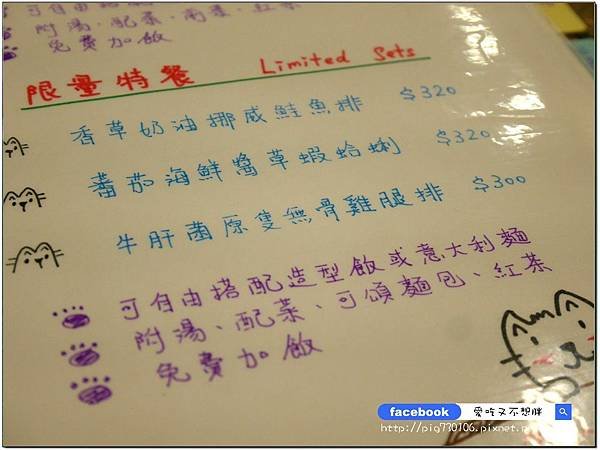 可自由搭配造型飯
附湯、配菜、南菜、紅茶
免費加飯
限量特餐 Limited Sets
香草奶油挪威鮭魚排 $320
蕃茄海鮮醬草蝦蛤蜊 $320
牛肝菌原隻無骨雞腿排 $300
可自由搭配造型飯或意大利麵
附湯、配菜、可頌麵包、紅茶
免費加飯
facebook 愛吃又不想胖
http://pig770106.pixnet.n